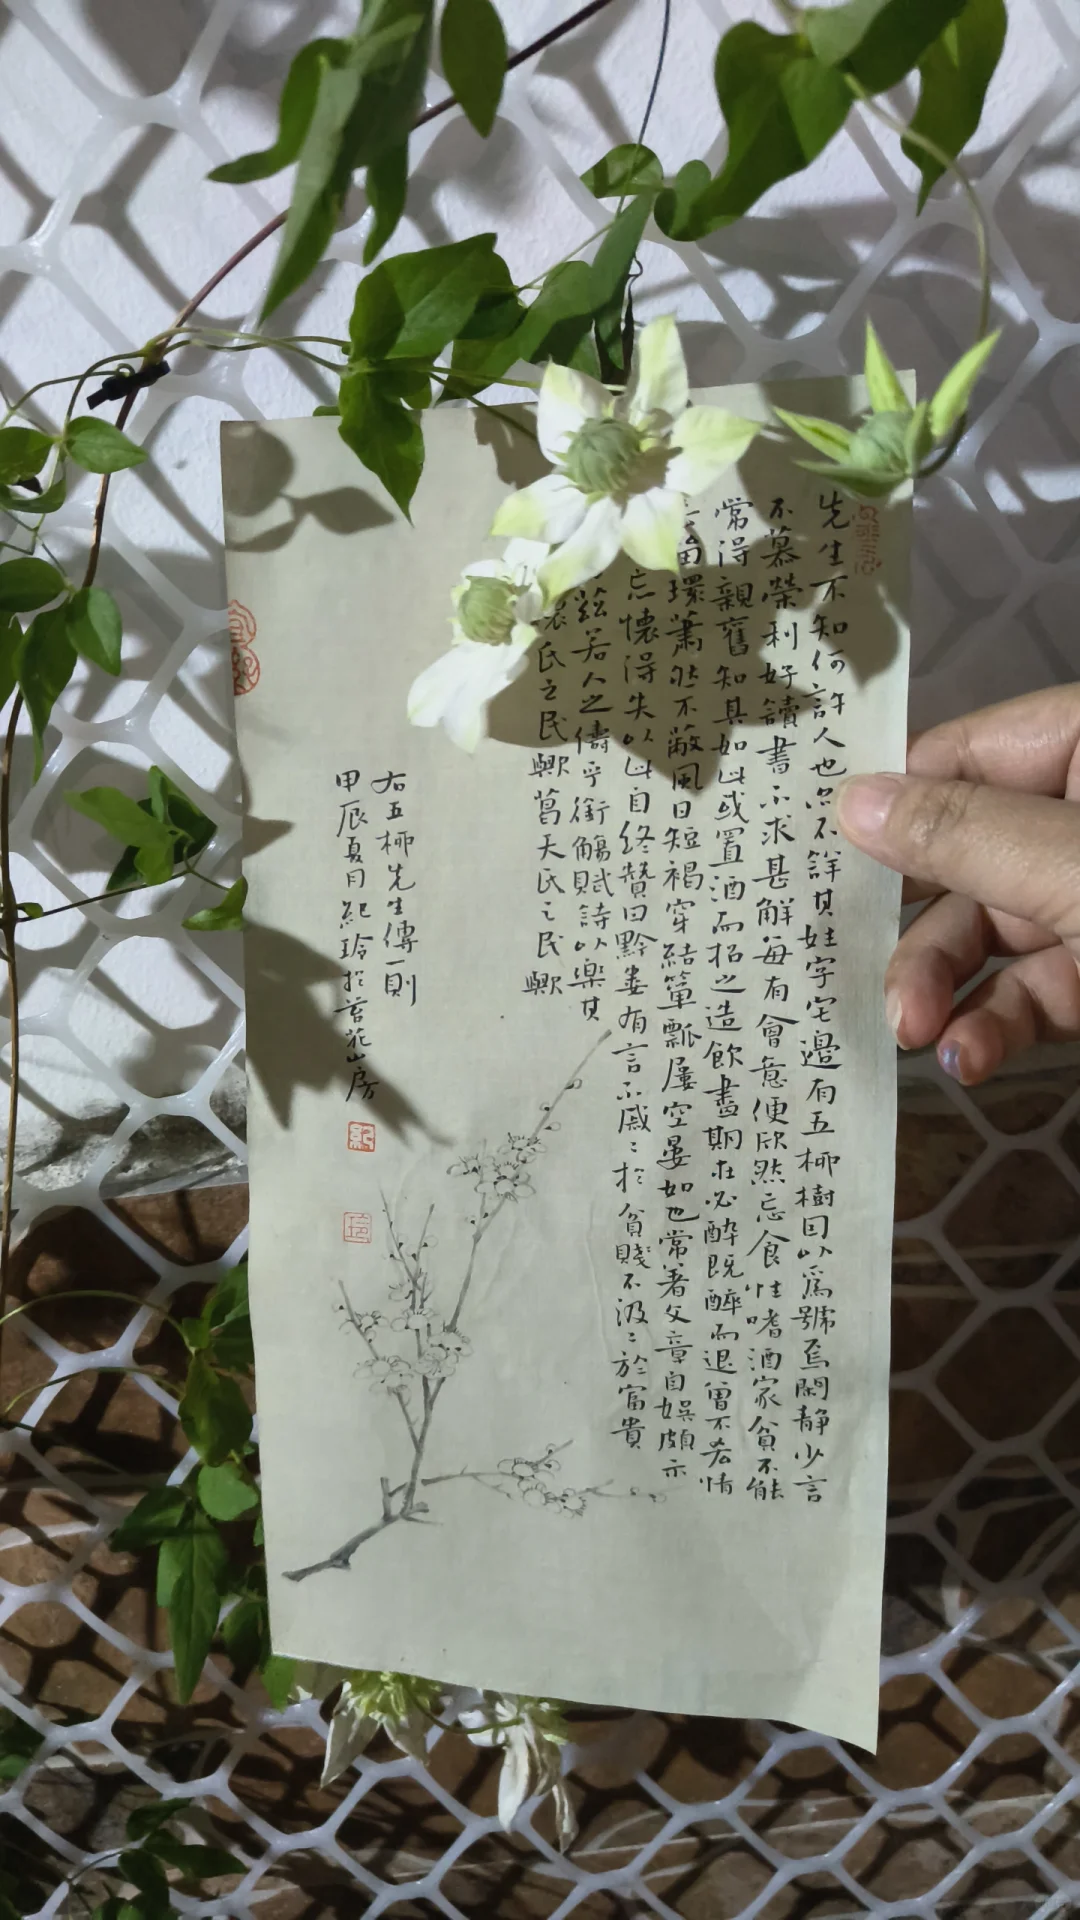 先生不知何許人也亦不詳其姓字宅邊有五柳樹因以爲號焉閑静少言
不慕榮利好讀書不求甚解每有會意便欣然忘食性嗜酒家貧不能
常得親舊知其如此或置酒而招之造飲盡期在必醉既醉而退曾不吝情
環蕭然不蔽風日短褐穿結簞瓢屢空晏如也常著文章自娛頗示
忘懷得失以此自終贊曰黔婁有言不戚〻於貧賤不汲〻於富貴
兹若人之儔乎銜觴賦詩以樂其
氏之民歟葛天氏之民歟
右五柳先生傳一則
甲辰夏月紀玲於苔花山房
紀
玲